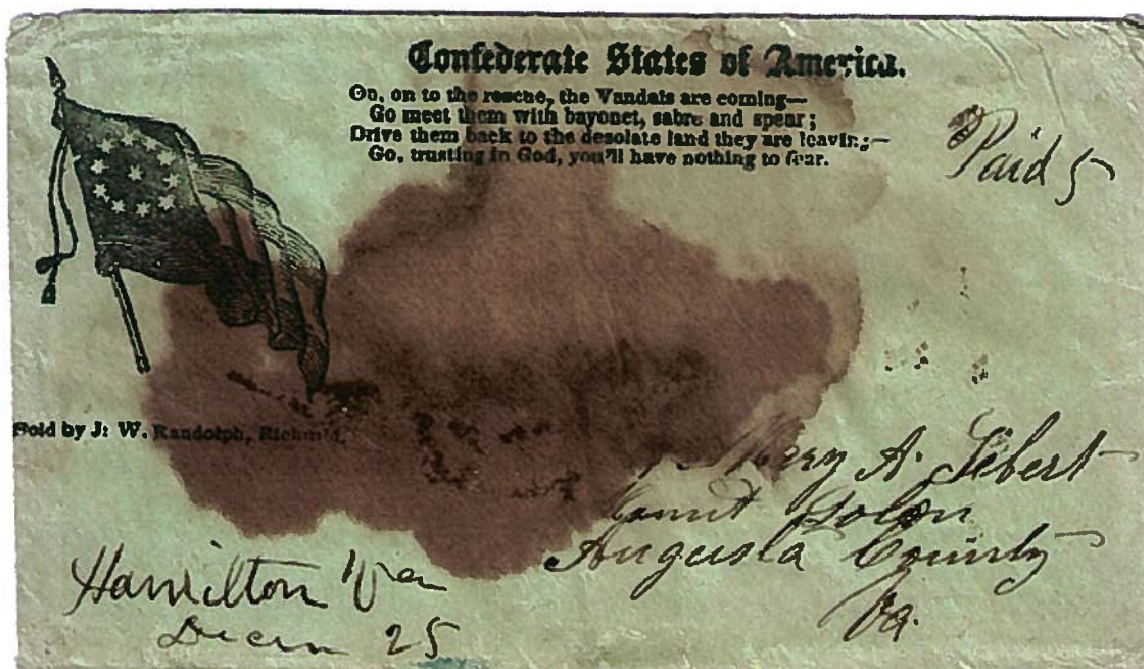 Confederate States of America.
On, on to the rescue, the Vandals are coming—
Go meet them with bayonet, sabre and spear;
Drive them back to the desolate land they are leaving;—
Go, trusting in God, you'll have nothing to fear.
Paid 5
Sold by J. W. Randolph, Richmond.
Mary A. Sebert
Mount Solon
Augusta County
Va.
Hamilton Va
Decem 25